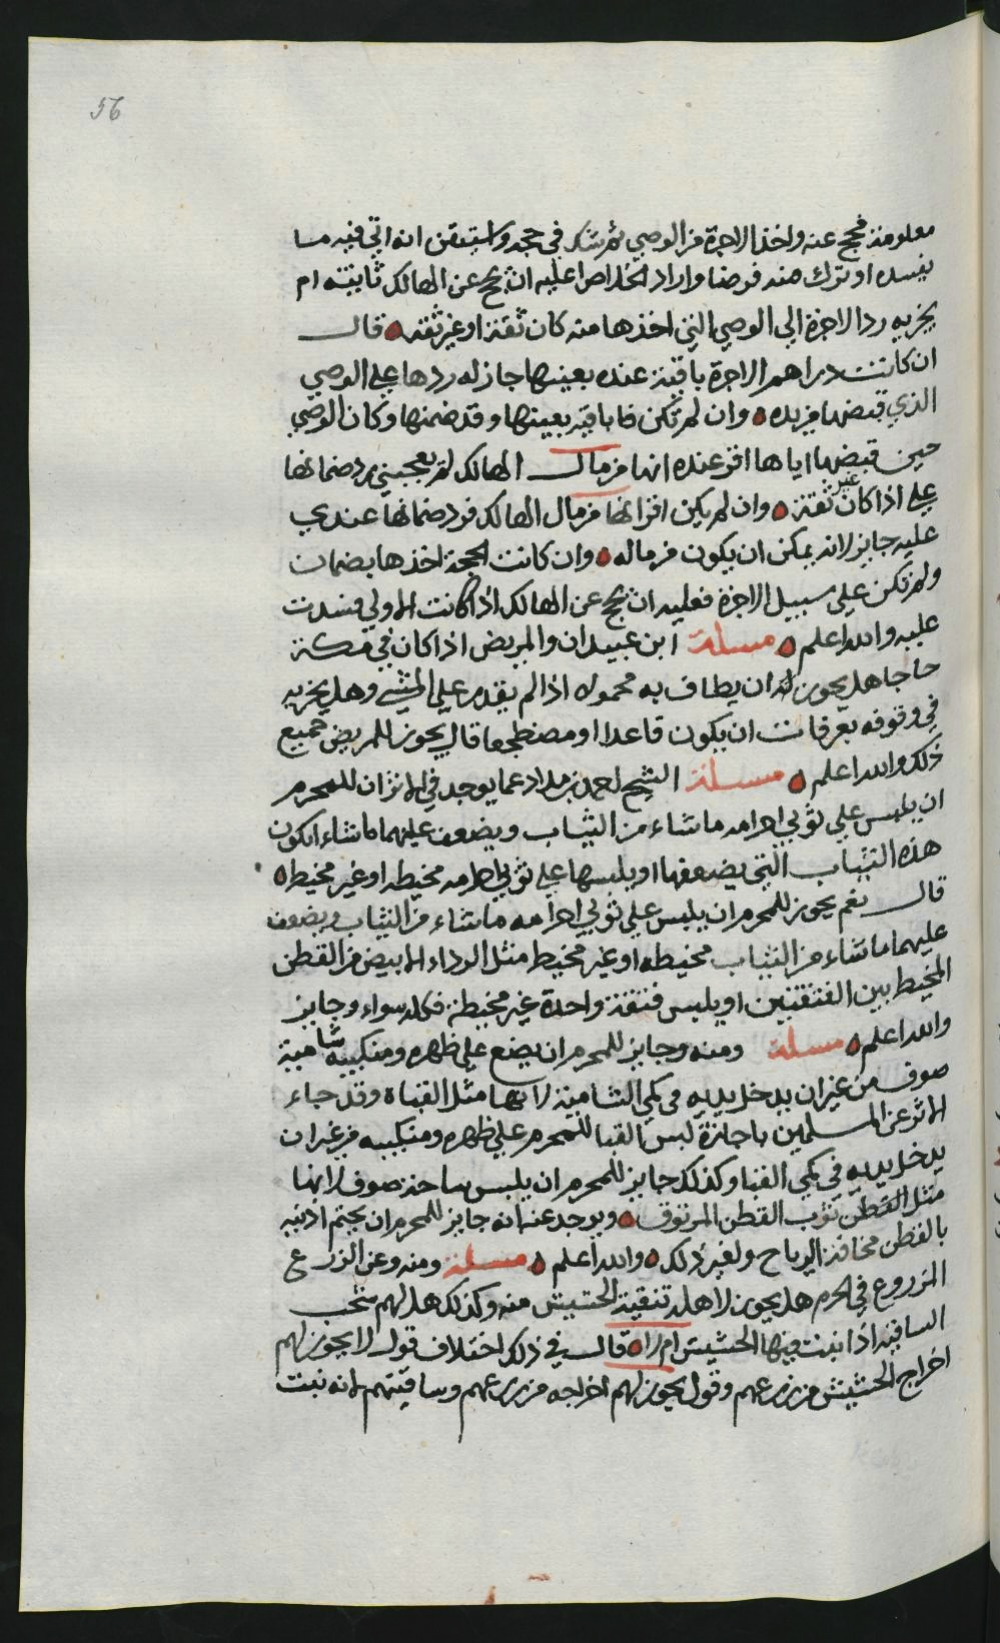 56
معلومة فحج عنه واخذ الاجرة من الوصي ثم شك في حجه واستيقن انه اتى فيه ما
يفسده او ترك منه فرضا واراد الخلاص اعليه ان يحج عن الهالك ثانيتة ام
يجزيه رد الاجرة الي الوصي التي اخذها منه كان ثقة او غير ثقه قال
ان كانت دراهم الاجرة باقية عنده بعينها جاز له ردها علي الوصي
الذي قبضها من يده وان لم تكن باقيه بعينها وقد ضمنها وكان الوصي
حين قبضها اياها اقر عنده انها من مال الهالك لم يعجبني رد ضمانها
علي اذا كان غير ثقة وان لم يكن اقر انها من مال الهالك فرد ضمانها عندي
عليه جايز لانه يمكن ان يكون من ماله وان كانت الحجة اخذها بضمان
ولم تكن علي سبيل الاجرة فعليه ان يحج عن الهالك اذا كانت الاولي فسدت
عليه والله اعلم مسلة ابن عبيدان والمريض اذا كان في مكة
حاجا هل يجوز له ان يطاف به محمولا اذا لم يقدر علي المشي وهل يجزيه
في وقوفه بعرفات ان يكون قاعدا او مضطجعا قال يجوز للمريض جميع
ذلك والله اعلم مسلة الشيخ احمد بن مداد عما يوجد في الاثر ان للمحرم
ان يلبس علي ثوبي احرامه ما شاء من الثياب ويضعف عليهما ما شاء ايكون
هذه الثياب التي يضعفها او يلبسها علي ثوبي احرامه مخيطه او غير مخيطه
قال نعم يجوز للمحرم ان يلبس علي ثوبي احرامه ما شاء من الثياب ويضعف
عليهما ما شاء من الثياب مخيطه او غير مخيط مثل الرداء الابيض من القطن
المخيط بين الفتقتين او يلبس فتقة واحدة غير مخيطة فكله سواء وجايز
والله اعلم مسلة ومنه وجايز للمحرم ان يضع علي ظهره ومنكبيه شامية
صوف من غير ان يدخل يديه في كمي الشامية لانها مثل القباة وقد جاء
الاثر عن المسلمين باجازة لبس القبا للمحرم علي ظهره ومنكبيه من غير ان
يدخل يديه في كمي القبا وكذلك جايز للمحرم ان يلبس ساحة صوف لانها
مثل القطن ثوب القطن المرتوق ويوجد عنه انه جايز للمحرم ان يختم اذنيه
بالقطن مخافة الرياح ولغير ذلك والله اعلم مسلة ومنه وعن الزرع
المزروع في الحرم هل يجوز لاهله تنقية الحشيش منه وكذلك هل لهم شحب
الساقيه اذا نبت فيها الحشيش ام لا قال في ذلك اختلاف قول لا يجوز لهم
اخراج الحشيش من زرعهم وقول يجوز لهم اخراجه من زرعهم وساقيتهم لانه نبت